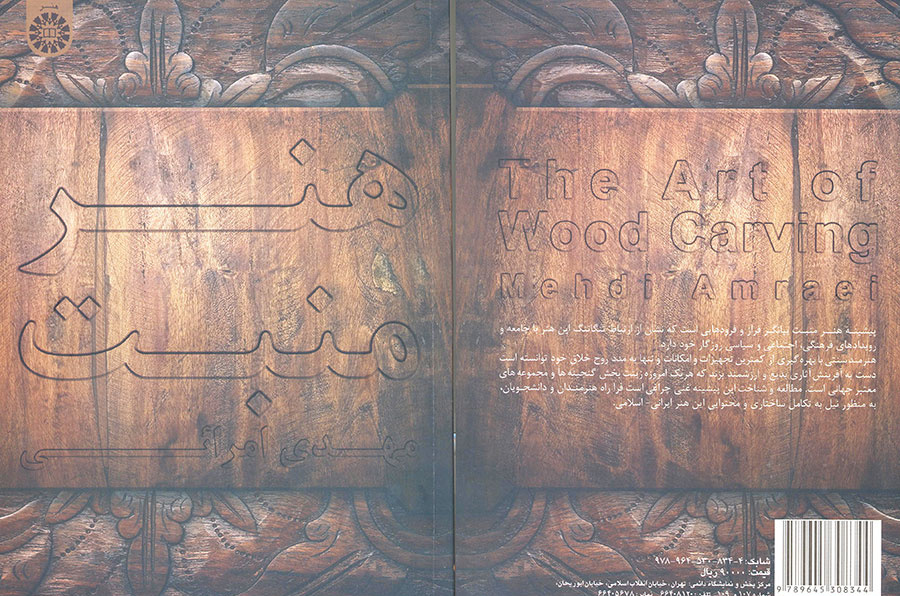 هنر
منبت
مهدی امرائی
The Art of
Wood Carving
Mehdi Amraei
پیشینهٔ هنر منبت بیانگر فراز و فرودهایی است که نشان از ارتباط تنگاتنگ این هنر با جامعه و
رویدادهای فرهنگی، اجتماعی و سیاسی روزگار خود دارد.
هنرمند سنتی با بهره‌گیری از کمترین تجهیزات و امکانات و تنها به مدد روح خلاق خود توانسته است
دست به آفرینش آثاری بدیع و ارزشمند بزند که هریک امروزه زینت بخش گنجینه‌ها و مجموعه‌های
معتبر جهانی است. مطالعه و شناخت این پیشینه غنی چراغی است فرا راه هنرمندان و دانشجویان،
به منظور نیل به تکامل ساختاری و محتوایی این هنر ایرانی- اسلامی.
شابک: ۴-۸۳۴-۵۳۰-۹۶۴-۹۷۸
قیمت: ۹۰۰۰۰ ریال
مرکز پخش و نمایشگاه دائمی: تهران، خیابان انقلاب اسلامی، خیابان ابوریحان،
شماره ۱۰۷ و ۱۰۹، تلفن: ۶۶۴۰۸۱۲۰، نمابر: ۶۶۴۰۵۶۷۸
9 789645 308344